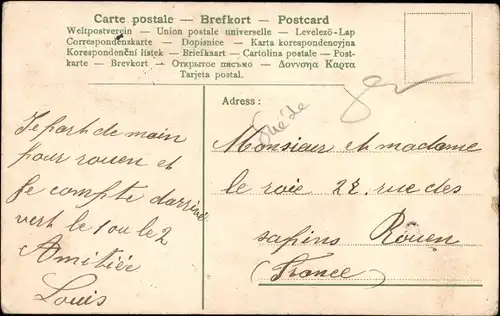 Carte postale – Brefkort – Postcard
Weltpostverein – Union postale universelle – Levelező-Lap
Correspondenzkarte – Dopisnice – Karta korespondencyjna
Korespondenční lístek – Briefkaart – Cartolina postale – Post-
karte – Brevkort – Открытое письмо – Δοννσηα Καρτα
Tarjeta postal.
Adress:
Je part de main
pour rouen et
je compte darrivé
vert le 1 ou le 2
Amitiée
Louis
Monsieur et madame
le roie 22, rue des
sapins Rouen
(France)